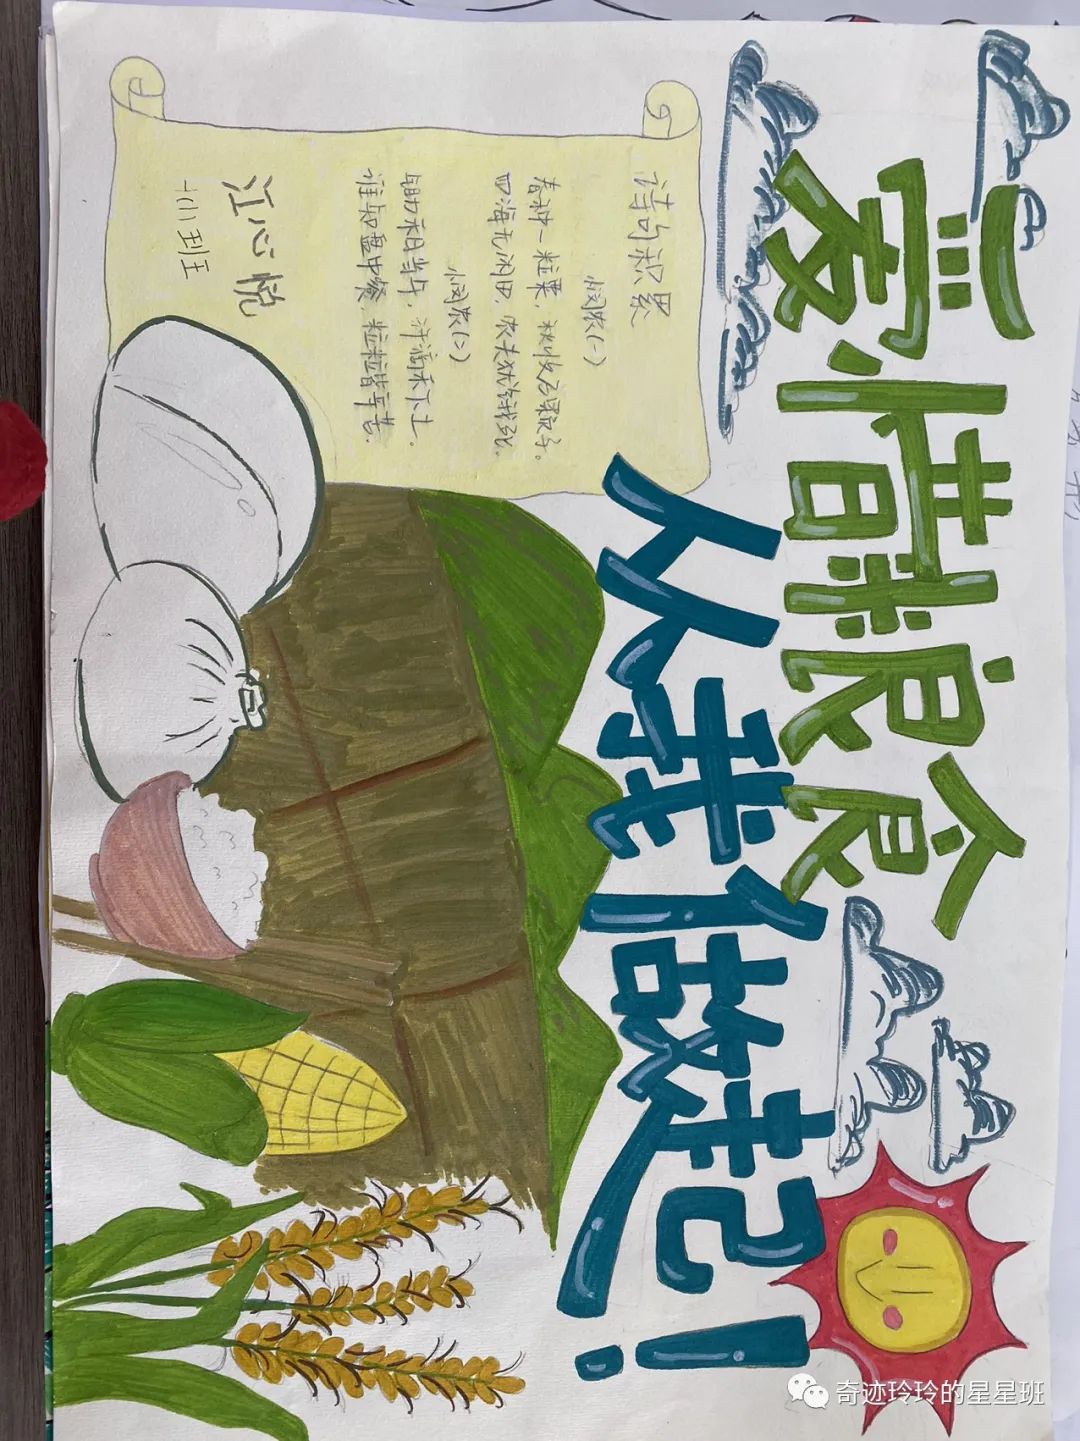 爱惜粮食
从我做起!
诗句积累
悯农(一)
春种一粒粟,秋收万颗子。
四海无闲田,农夫犹饿死。
悯农(二)
锄禾日当午,汗滴禾下土.
谁知盘中餐,粒粒皆辛苦.
江心悦
奇迹玲玲的星星班